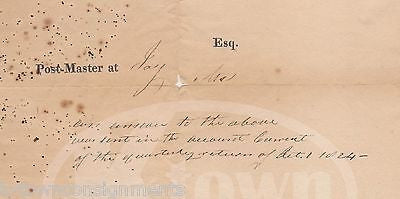 Esq.
Post-Master at Jay Me
answer to the above
was sent in the account Current
of the quarterly return of Oct. 1 1824-